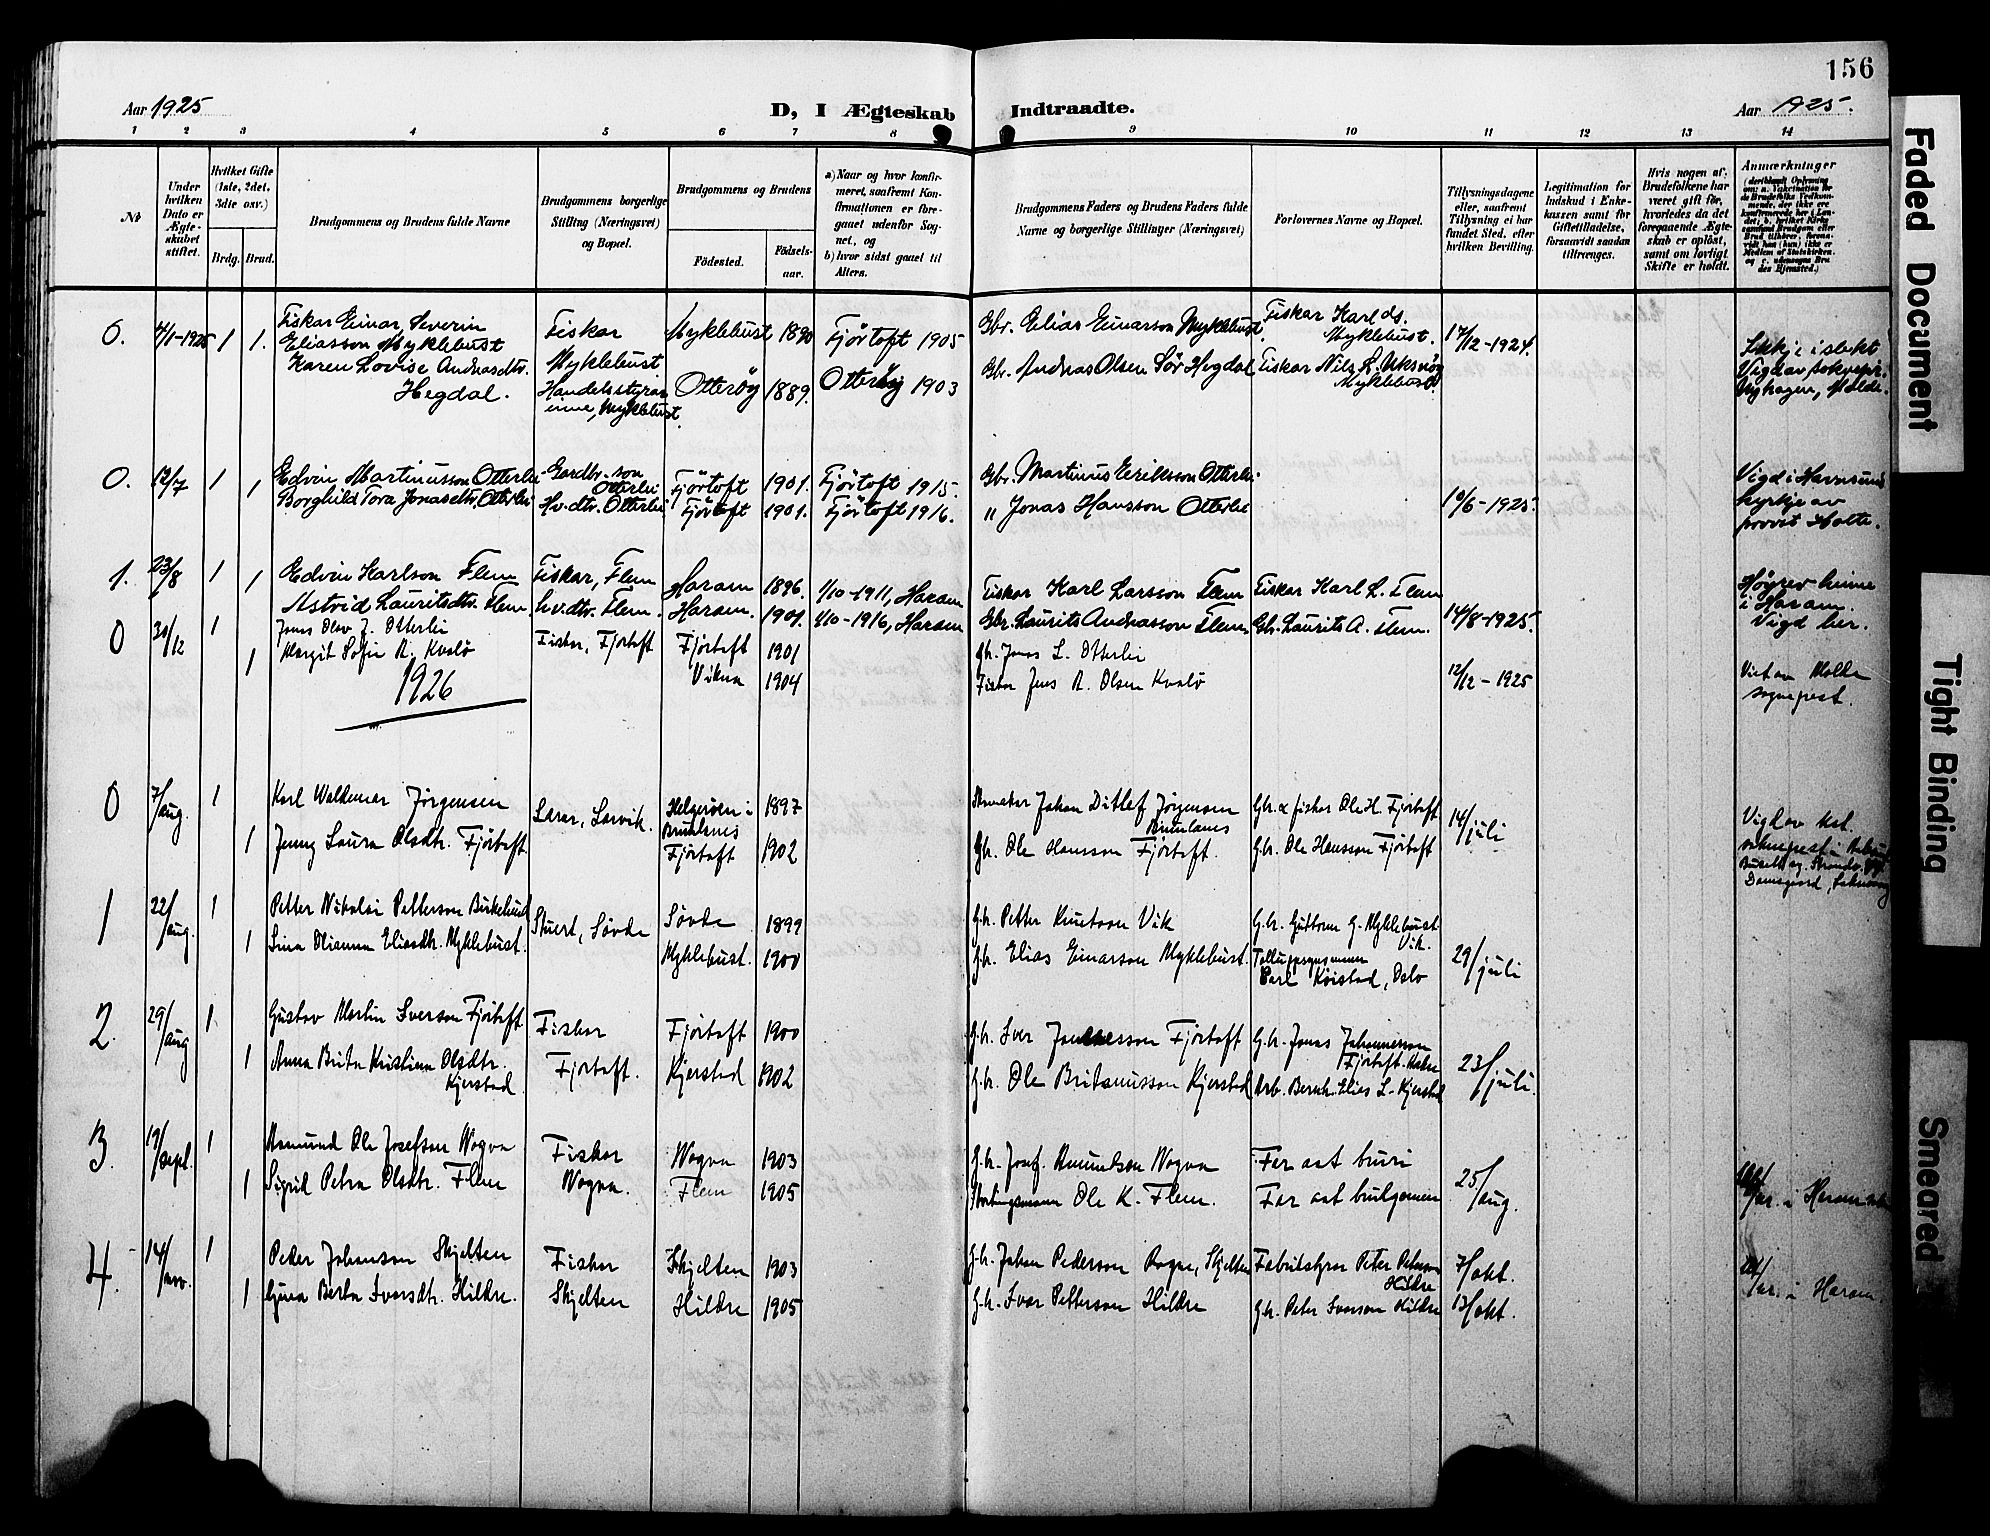 156
Aar 1925
D, I Ægteskab Indtraadte.
Aar 1925.
1 2 3 4 5 6 7 8 9 10 11 12 13 14
No
Under hvilken Dato er Ægteskabet stiftet.
Hvilket Gifte (1ste, 2det, 3die osv.)
Brdg. Brud.
Brudgommens og Brudens fulde Navne
Brudgommens borgerlige Stilling (Næringsvei) og Bopæl.
Brudgommens og Brudens
Födested. Födsels-aar.
a) Naar og hvor konfirmeret, saafremt Konfirmationen er foregaaet udenfor Sognet, og
b) hvor sidst gaaet til Alters.
Brudgommens Faders og Brudens Faders fulde Navne og borgerlige Stillinger (Næringsvei)
Forlovernes Navne og Bopæl.
Tillysningsdagene eller, saafremt Tillysning ei har fundet Sted, efter hvilken Bevilling.
Legitimation for Indskud i Enkekassen samt for Giftetilladelse, forsaavidt saadan tiltrænges.
Hvis nogen af Brudefolkene har været gift før, hvorledes da det foregaaende Ægteskab er oplöst, samt om lovligt Skifte er holdt.
Anmærkninger
0. 4/1-1925 1 1. Fiskar Einar Severin Eliasson Myklebust Fiskar Myklebust Myklebust 1890 Fjörtoft 1905 Gbr. Elias Einarson Myklebust. Fiskar Karl ds. Myklebust. 17/12-1924.
Karen Lovise Andreasdtr. Hegdal. Handelsstyrarinne, Myklebust. Otteröy 1889. Otteröy 1903 Gbr. Andreas Olsen Sör Hegdal Fiskar Nils L. Uksnöy Myklebust.
Ikkje i slekt Vigd av sokneprest Nyhagen, Molde.
0. 12/7 1 Edvin Martinusson Otterlei Gardbr. son Otterlei Fjörtoft 1901. Fjörtoft 1915. Gbr. Martinus Eriksson Otterlei
1 Borghild Tora Jonasdtr. Otterlei Hv.dtr. Otterlei Fjörtoft 1901. Fjörtoft 1916. " Jonas Hansson Otterlei 10/6-1925.
Vigd i Havnsund kyrkje av provst Holte.
1. 23/8 1 Edvin Karlson Flem Fiskar, Flem Haram 1896. 1/10-1911, Haram Fiskar Karl Larsson Flem Fiskar Karl L. Flem
1 Astrid Lauritsdtr. Flem. hv.dtr. Flem. Haram. 1901. 1/10-1916, Haram Gbr. Laurits Andreasson Flem. Gbr. Laurits A. Flem. 14/8-1925.
i Haram. Vigd her.
0 30/12 1 Jons Olav J. Otterlei Fisker, Fjørtoft Fjørtoft 1901 Gbr. Jonas L. Otterlei
1 Margit Sofie A. Kvalø Vikna 1904 Fisker Jens A. Olsen Kvalø 12/12-1925
Viet av Molde sogneprest.
1926
0 7/aug. 1 Karl Waldemar Jörgensen Lærer, Larvik. Helgeroen i Brunlanes 1897 Johan Ditlef Jörgensen Brunlanes Gbr. & fisker Ole H. Fjørtoft 14/juli
1 Jenny Laura Olsdtr. Fjörtoft Fjørtoft 1902 Gbr. Ole Hansson Fjörtoft. Gbr. Ole Hansson Fjørtoft
Vigd av
1 22/aug. 1 Petter Nikolai Petterson Birkelund Stuert, Sövde Sövde 1899 G.br. Petter Knutson Vik G.br. Guttorm G. Myklebust Vik.
1 Lina Olianna Eliasdtr. Myklebust. Myklebust. 1900 G.br. Elias Einarson Myklebust. Tolloppsynsmann Karl Kòistad, Oslo 29/juli
2. 29/aug 1 Gustav Martin Iverson Fjörtoft Fisker Fjörtoft. Fjörtoft 1900 G.br. Iver Fjörtoft G.br. Jonas Johannesson Fjörtoft. 23/juli.
1 Anna Brita Kristina Olsdtr. Kjerstad Kjerstad 1902 G.br. Ole Britanusson Kjerstad Arb. Elias L. Kjerstad
3. 19/sept. 1 Asmund Ole Josefson Vogva Fisker Vogva. Vogva 1903 G.br. Josef. Knutson Vogva Far åt bruri 25/aug.
1 Sigrid Petra Olsdtr. Flem Flem 1905 Stortingsmann Ole K. Flem. Far åt brudgomen
4. 14/nov. 1 Peder Johanson Skjelten Fisker Skjelten Skjelten 1903 G.br. Johan Pederson Rogne, Skjelten Fabrikstyrar Peter Peterson Hildre 7/okt.
1 Gjina Berta Ivarsdtr. Hildre. Hildre 1905 G.br. Ivar Petterson Hildre G.br. Peter Iverson Hildre 13/okt.
i Haram.
Faded Document
Tight Binding
Smeared